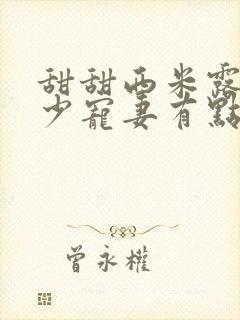 甜甜西米露
少寵妻有點
曾永權